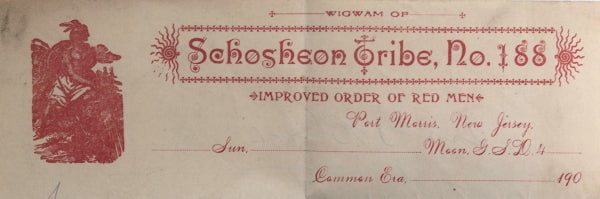 WIGWAM OF
Schosheon Tribe, No. 188
IMPROVED ORDER OF RED MEN
Port Morris, New Jersey,
Sun, Moon, G.S.D. 4
Common Era, 190